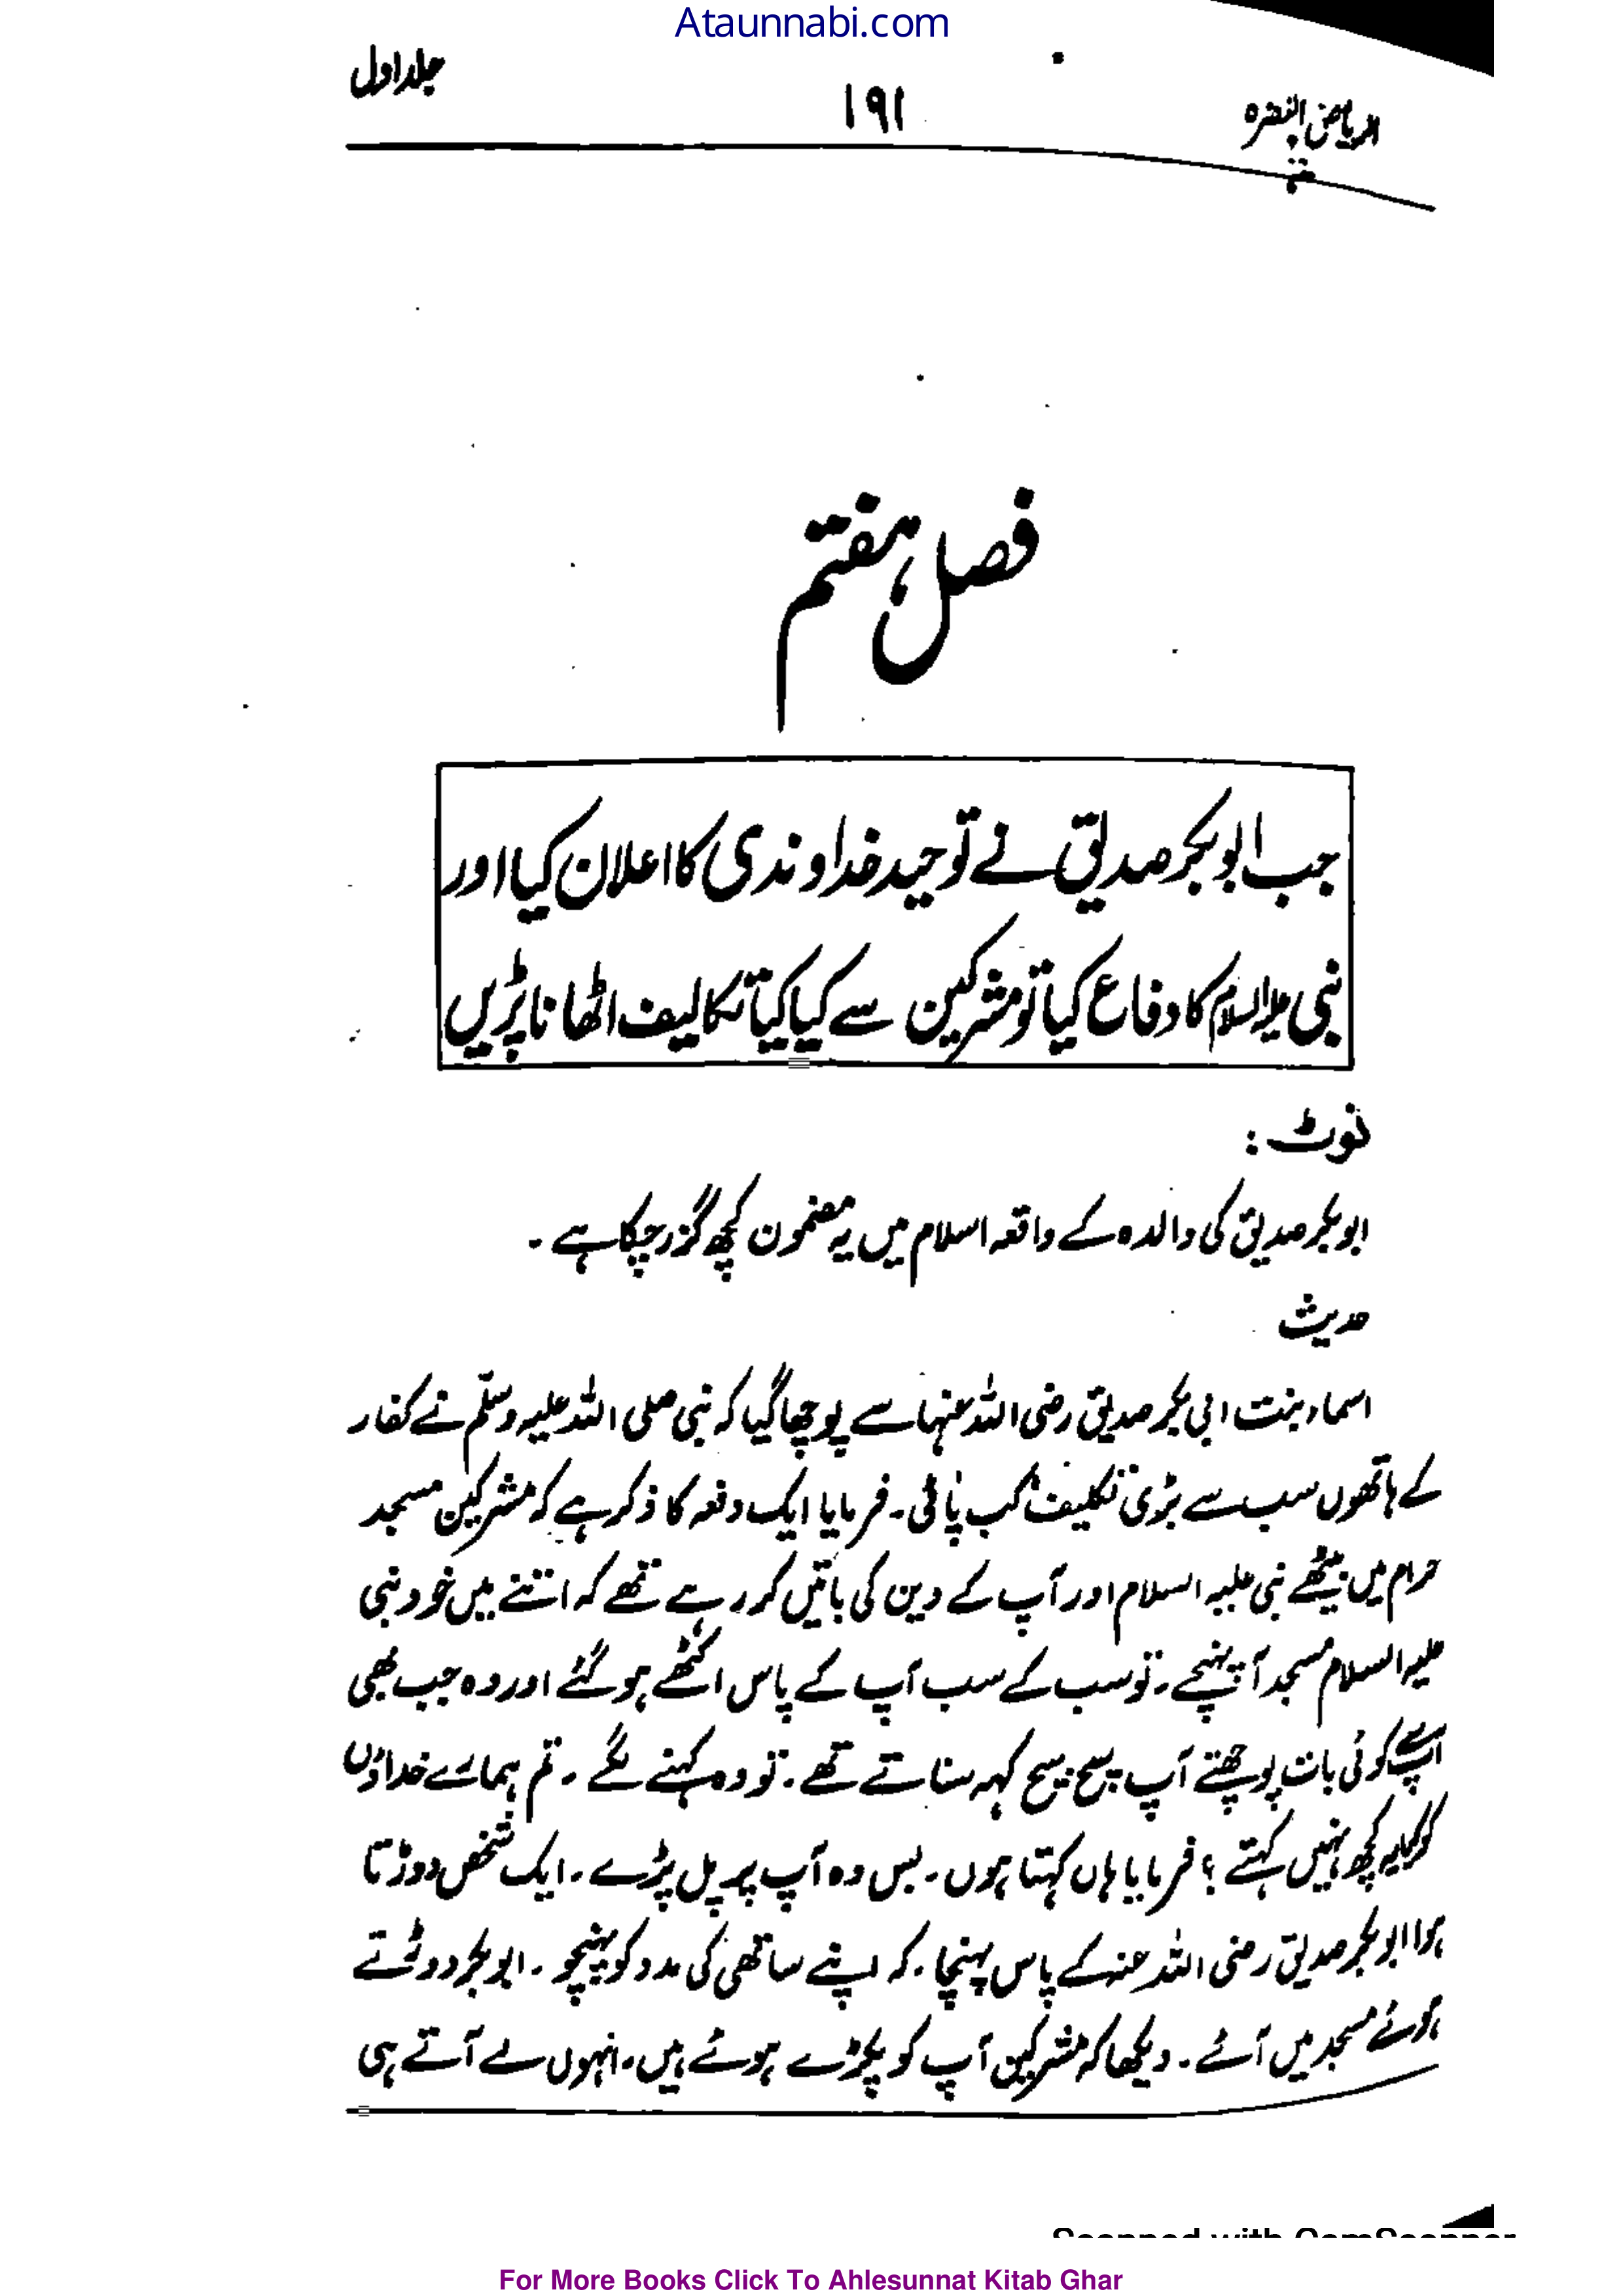 Ataunnabi.com
الریاض النضرہ ۱۹۱ جلد اول
فصل ہفتم
جب ابوبکر صدیق نے توحید خداوندی کا اعلان کیا اور
نبی علیہ السلام کا دفاع کیا تو مشرکین سے کیا کیا تکالیف اٹھانا پڑیں
نوٹ :
ابوبکر صدیق کی والدہ کے واقعہ اسلام میں یہ مضمون کچھ گزر چکا ہے ۔
حدیث
اسماء بنت ابی بکر صدیق رضی اللہ عنہا سے پوچھا گیا کہ نبی صلی اللہ علیہ وسلّم نے کفار
کے ہاتھوں سب سے بڑی تکلیف کب پائی ۔ فرمایا ایک دفعہ کا ذکر ہے کہ مشرکین مسجد
حرام میں بیٹھے نبی علیہ السلام اور آپ کے دین کی باتیں کر رہے تھے کہ اتنے میں خود نبی
علیہ السلام مسجد آ پہنچے ۔ تو سب کے سب آپ کے پاس اکٹھے ہو گئے اور وہ جب بھی
آپ سے کوئی بات پوچھتے آپ سچ سچ کہہ سناتے تھے ۔ تو وہ کہنے لگے ۔ تم ہمارے خداؤں
کو کیا یہ کچھ نہیں کہتے ؟ فرمایا ہاں کہتا ہوں ۔ بس وہ آپ پر پل پڑے ۔ ایک شخص دوڑتا
ہوا ابوبکر صدیق رضی اللہ عنہ کے پاس پہنچا ۔ کہ اپنے ساتھی کی مدد کو پہنچو ۔ ابوبکر دوڑتے
ہوئے مسجد میں آئے ۔ دیکھا کہ مشرکین آپ کو پکڑے ہوئے ہیں ۔ انہوں نے آتے ہی
Scanned with CamScanner
For More Books Click To Ahlesunnat Kitab Ghar